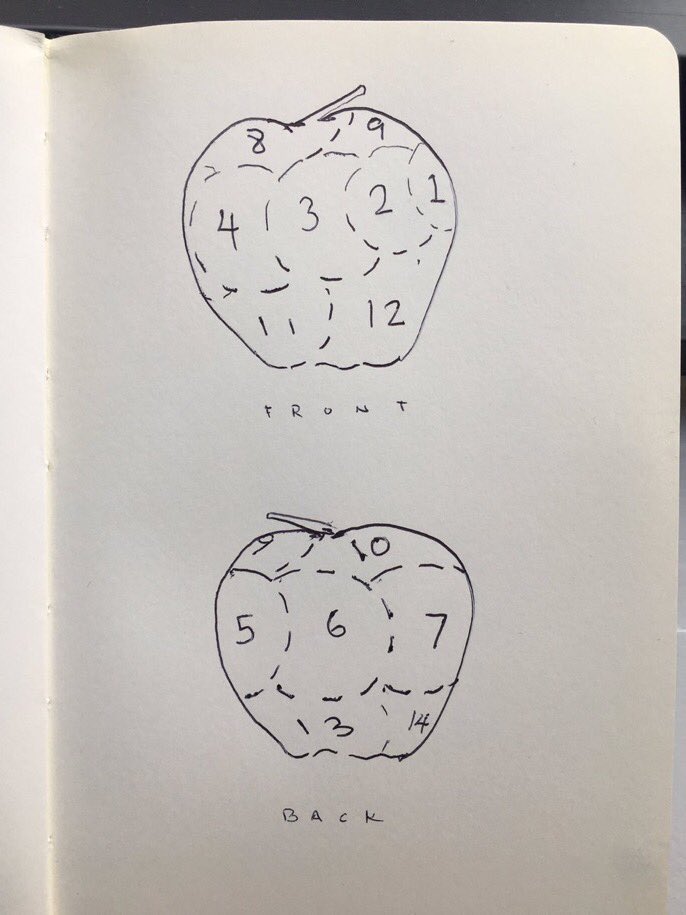 8 9
4 3 2 1
11 12
FRONT
9 10
5 6 7
13 14
BACK